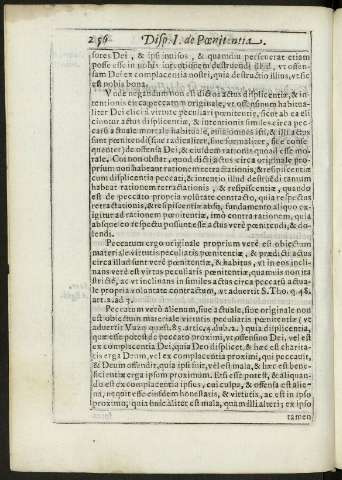 256 Disp. I. de Pœnitentia.
sores Dei, & ipsi inuisos, & quamdiu perseuerat etiam
posse esse in nobis intentionem destruendi illud, vt offen-
sam Dei ex complacentia nostri, quia destructio illius, vt sic
est nobis bona.
Vnde negandum non est dictos actus displicentiæ, & in-
tentionis circa peccatum originale, vt offensiuum habitua-
liter Dei elici à virtute peculiari pœnitentiæ, sicut ab ea eli-
ciuntur actus displicentiæ, & intentionis similes circa pec-
catū actuale mortale habituale, cùm omnes isti, & illi actus
sint pœnitendi (siue radicaliter, siue formaliter, siue conse-
quenter) de offensa Dei, & eiusdem rationis quoad esse mo-
rale. Cui non obstat, quod dicti actus circa originale pro-
prium non habeant rationem retractationis, & respiscentiæ
cum displicentia peccati, & intentio illud destruendi tantum
habeat rationem retractationis, & respiscentiæ, quando
est de peccato proprio voluntate contracto, quia respectus
retractationis, & respiscentiæ absq. fundamento aliquo ex-
igitur ad rationem pœnitentiæ, imò contra rationem, quia
absque eo respectu possunt esse actus verè pœnitendi, & do-
lendi.
Peccatum ergo originale proprium verè est obiectum
materiale virtutis peculiaris pœnitentiæ, & prædicti actus
circa illud sunt verè pœnitentiæ, & habitus, vt in eos incli-
nans verè est virtus peculiaris pœnitentiæ, quamuis non ita
strictè, ac vt inclinans in similes actus circa peccatū actua-
le propria voluntate contractum, vt aduertit S. Tho. q. 48.
art. 2. ad 3.
Peccatum verò alienum, siue actuale, siue originale non
est obiectum materiale virtutis peculiaris pœnitentiæ (vt
aduertit Vazq. quæst. 85. artic. 4. dub. 2.) quia displicentia,
quæ esse potest de peccato proximi, vt offensiuo Dei, vel est
ex complacentia Dei, quia Deo displicet, & hæc est charita-
tis erga Deum, vel ex complacentia proximi, qui peccauit,
& Deum offendit, quia ipsi fuit, vel est mala, & hæc est bene-
uolentiæ erga ipsum proximum. Etsi esse potest, & aliquan-
do est ex complacentia ipsius, cui culpa, & offensa est alie-
na, nequit esse eiusdem honestatis, & virtutis, ac est in ipso
proximo, quia huic aliter est mala, quàm illi alteri; ex ipso
tamen